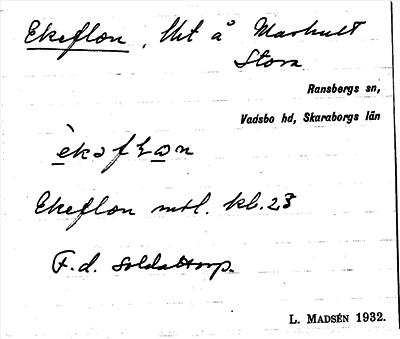 Ekeflon, lht å Marhult
Stora
Ransbergs sn,
Vadsbo hd, Skaraborgs län
Ekeflon mtl. kb. 23
F.d. soldattorp.
L. MADSÉN 1932.